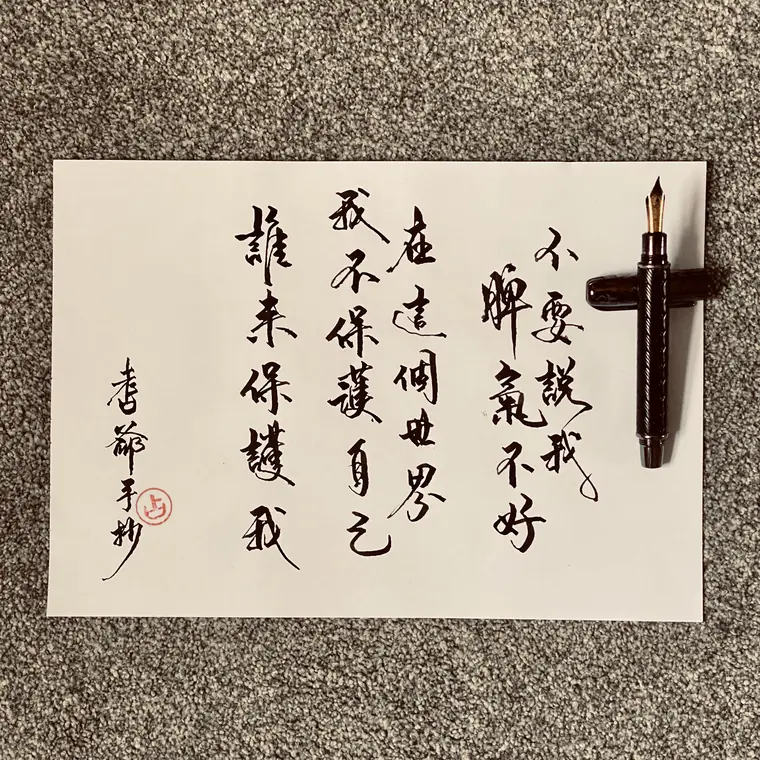 不要説我
脾氣不好
在這個世界
我不保護自己
誰来保護我
耆爺手抄
占